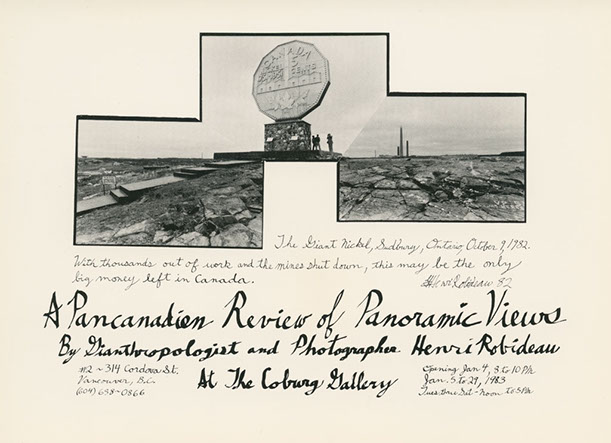 CANADA
5
CENTS
The Giant Nickel, Sudbury, Ontario October 9, 1982.
With thousands out of work and the mines shut down, this may be the only
big money left in Canada.
Henri Robideau 82
A Pancanadien Review of Panoramic Views
By Gianthropologist and Photographer Henri Robideau
#2 ~ 314 Cordova St.
Vancouver, B.C.
(604) 688-0866
At The Coburg Gallery
Opening Jan 4, 8 to 10 PM
Jan. 5 to 29, 1983
Tues. thru Sat - Noon to 5 PM